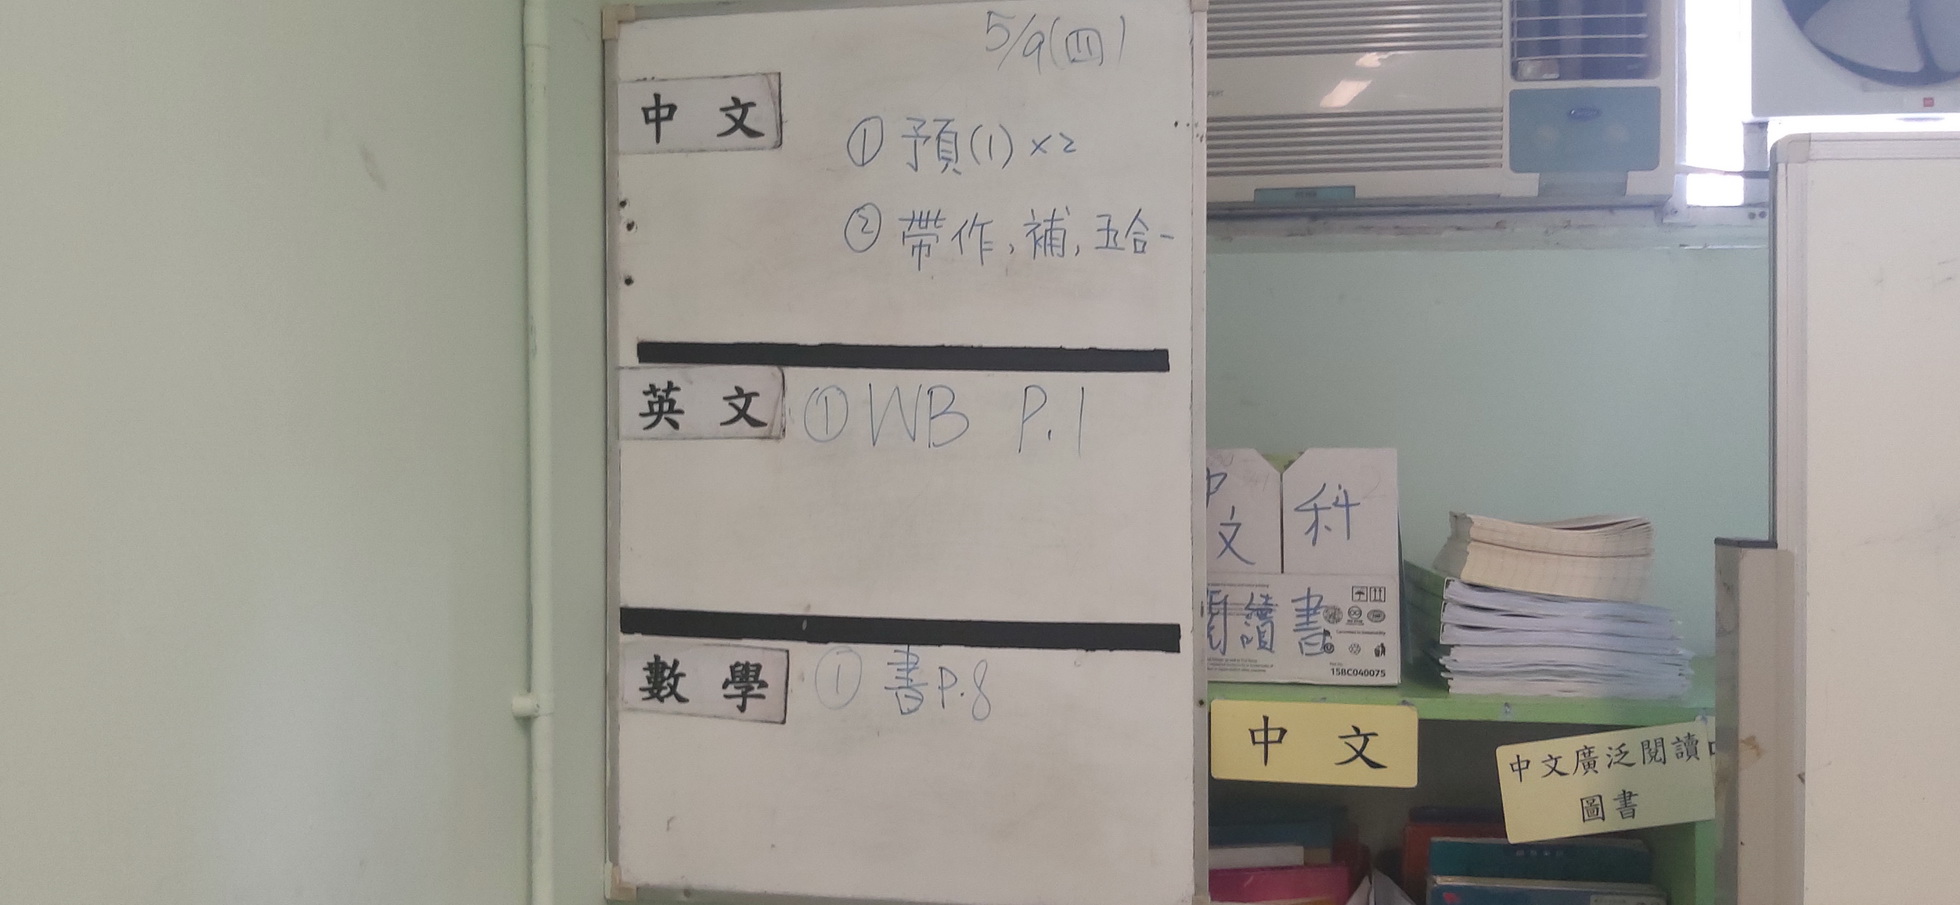 5/9(四)
中文
① 預(1)×2
② 帶作,補,五合一
英文
① WB P.1
數學
① 書P.8
中文
科
閱讀書
15BC040075
中文
中文廣泛閱讀
圖書